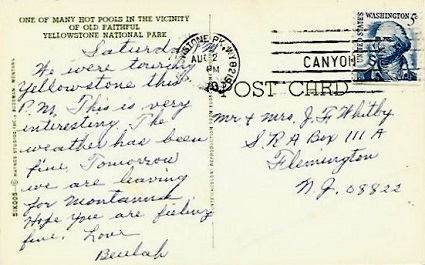 ONE OF MANY HOT POOLS IN THE VICINITY
OF OLD FAITHFUL
YELLOWSTONE NATIONAL PARK
Saturday
We were touring
Yellowstone this
P.M. This is very
interesting. The
weather has been
fine. Tomorrow
we are leaving
for Montanna
Hope you are feeling
fine. Love
Beulah
AUG 2
PM
CANYON
UNITED STATES
WASHINGTON 5c
POST CARD
Mr & Mrs. J. F. Whitby
S. R A Box 111 A
Flemington
N. J. 08822